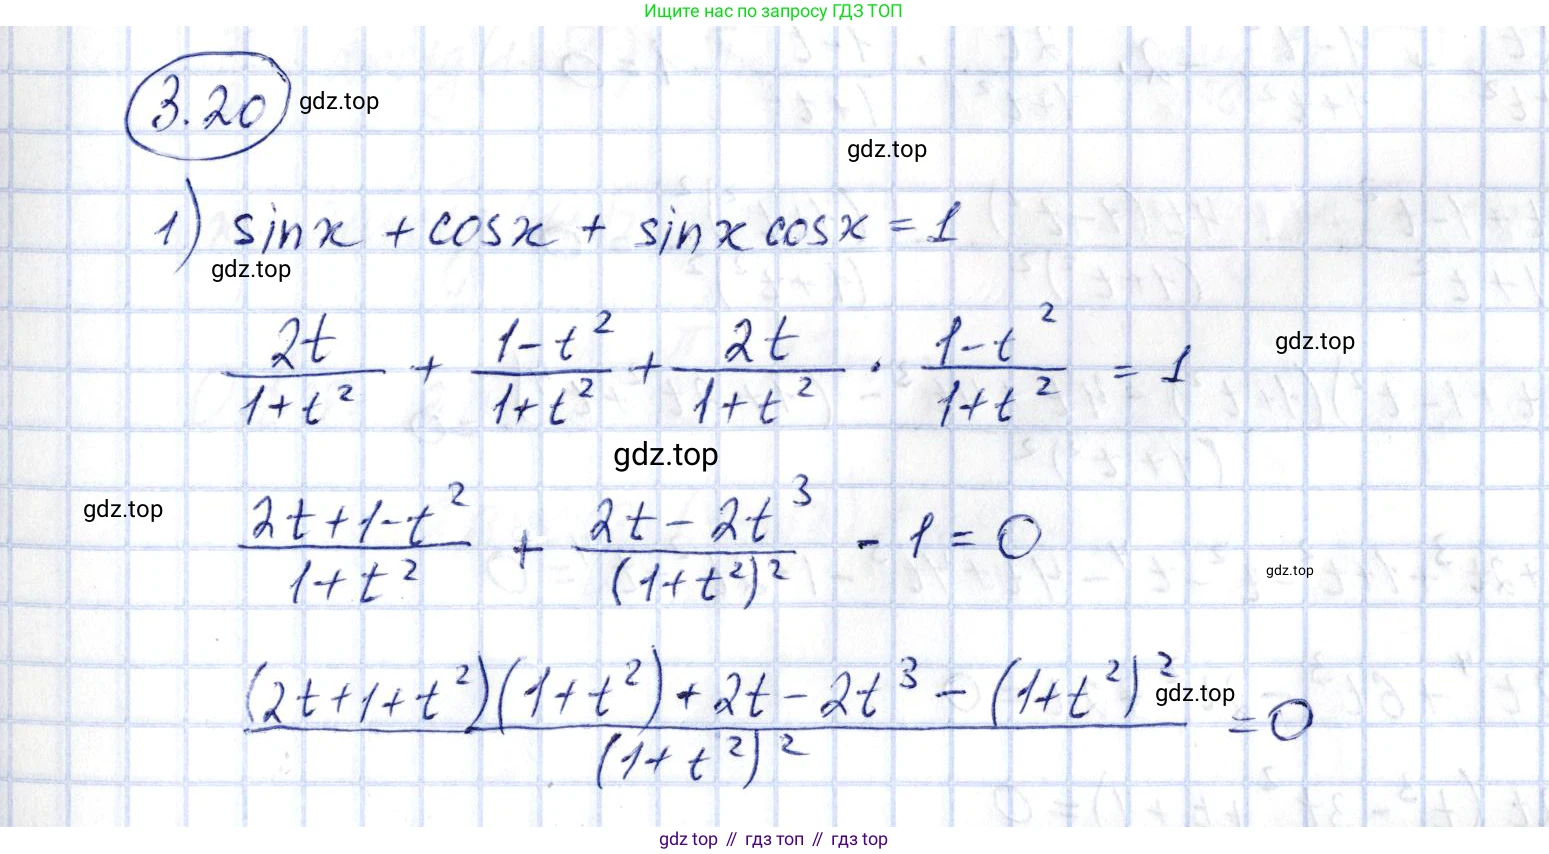 Ищите нас по запросу ГДЗ ТОП
3.20 gdz.top
gdz.top
1) sinx + cosx + sinx cosx = 1
gdz.top
2t/(1+t²) + (1-t²)/(1+t²) + 2t/(1+t²) · (1-t²)/(1+t²) = 1
gdz.top
gdz.top
gdz.top
(2t+1-t²)/(1+t²) + (2t-2t³)/(1+t²)² - 1 = 0
gdz.top
((2t+1+t²)(1+t²)+2t-2t³-(1+t²)²)/(1+t²)² = 0
gdz.top
gdz top // гдз топ // гдз top